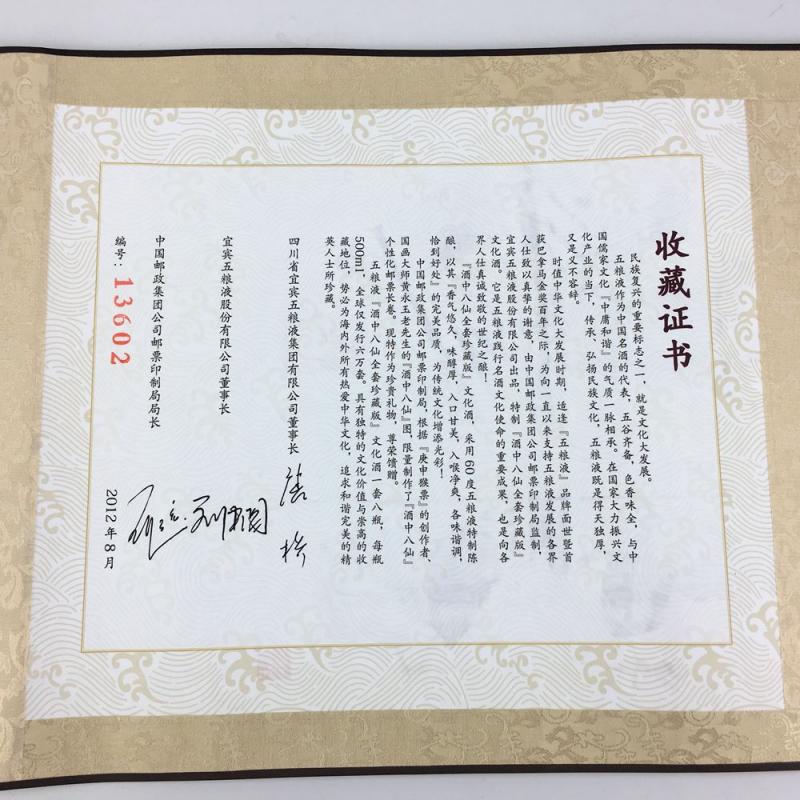 收藏证书
民族复兴的重要标志之一，就是文化大发展。
五粮液作为中国名酒的代表，五谷齐备，色香味全，与中
国儒家文化『中庸和谐』的气质一脉相承。在国家大力振兴文
化产业的当下，传承、弘扬民族文化，五粮液既是得天独厚，
又是义不容辞。
时值中华文化大发展时期，适逢『五粮液』品牌面世暨首
获巴拿马金奖百年之际，为向一直以来支持五粮液发展的各界
人仕致以真挚的谢意，由中国邮政集团公司邮票印制局监制，
宜宾五粮液股份有限公司出品，特制『酒中八仙全套珍藏版』
文化酒。它是五粮液践行名酒文化使命的重要成果，也是向各
界人仕真诚致敬的世纪之酿！
『酒中八仙全套珍藏版』文化酒，采用60度五粮液特制陈
酿，以其『香气悠久，味醇厚，入口甘美，入喉净爽，各味谐调，
恰到好处』的完美品质，为传统文化增添光彩！
中国邮政集团公司邮票印制局，根据『庚申猴票』的创作者、
国画大师黄永玉老先生的『酒中八仙』图，限量制作了『酒中八仙』
个性化邮票长卷。现特作为珍贵礼物，尊荣馈赠。
五粮液『酒中八仙全套珍藏版』文化酒一套八瓶，每瓶
500ml，全球仅发行六万套。具有独特的文化价值与崇高的收
藏地位，势必为海内外所有热爱中华文化、追求和谐完美的精
英人士所珍藏。
四川省宜宾五粮液集团有限公司董事长
宜宾五粮液股份有限公司董事长
中国邮政集团公司邮票印制局局长
编号：13602
2012年8月